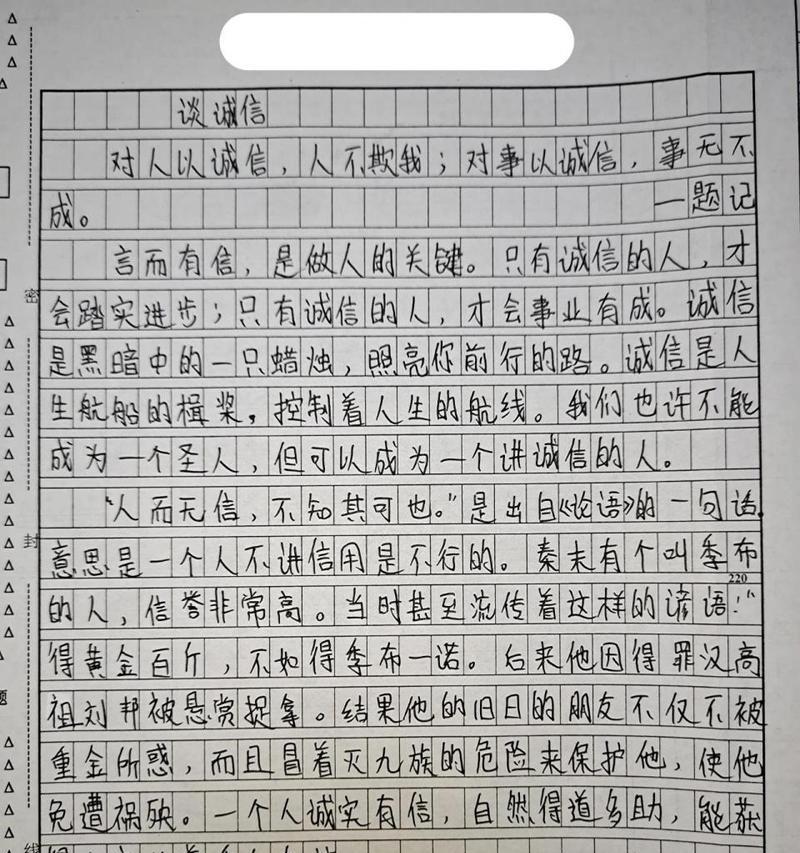 谈诚信
对人以诚信，人不欺我；对事以诚信，事无不
成。 —题记
言而有信，是做人的关键。只有诚信的人，才
会踏实进步；只有诚信的人，才会事业有成。诚信
是黑暗中的一只蜡烛，照亮你前行的路。诚信是人
生航船的楫桨，控制着人生的航线。我们也许不能
成为一个圣人，但可以成为一个讲诚信的人。
“人而无信，不知其可也。”是出自《论语》的一句话，
意思是一个人不讲信用是不行的。秦末有个叫季布
220
的人，信誉非常高。当时甚至流传着这样的谚语：“
得黄金百斤，不如得季布一诺。后来他因得罪汉高
祖刘邦被悬赏捉拿。结果他的旧日的朋友不仅不被
重金所惑，而且冒着灭九族的危险来保护他，使他
免遭祸殃。一个人诚实有信，自然得道多助，能获
密
封
线
题